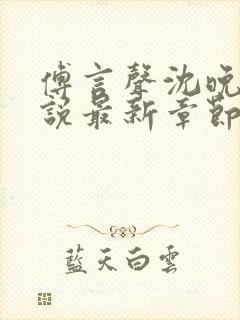 傅言聲沈晚
說最新章節
藍天白雲